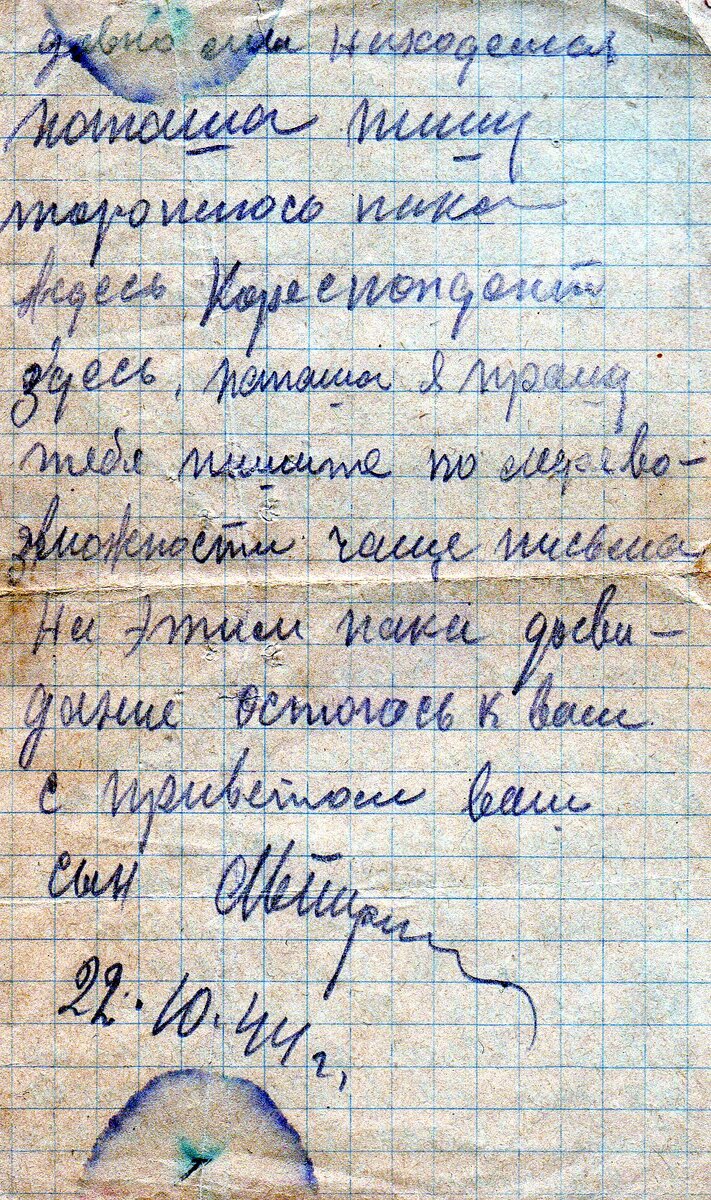 давно мы находемся
папаша пишу
торопюсь пока
здесь Кореспондент
здесь, папаша я прашу
тебя пишите по мере во-
зможности чаще письма
На этим пака дасви-
дание остаюсь к вам
с приветом ваш
сын
22.10.44 г.